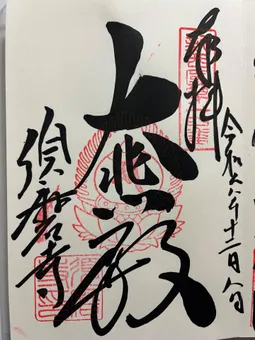 奉拝
令和六年十二月八日
大悲殿
須磨寺